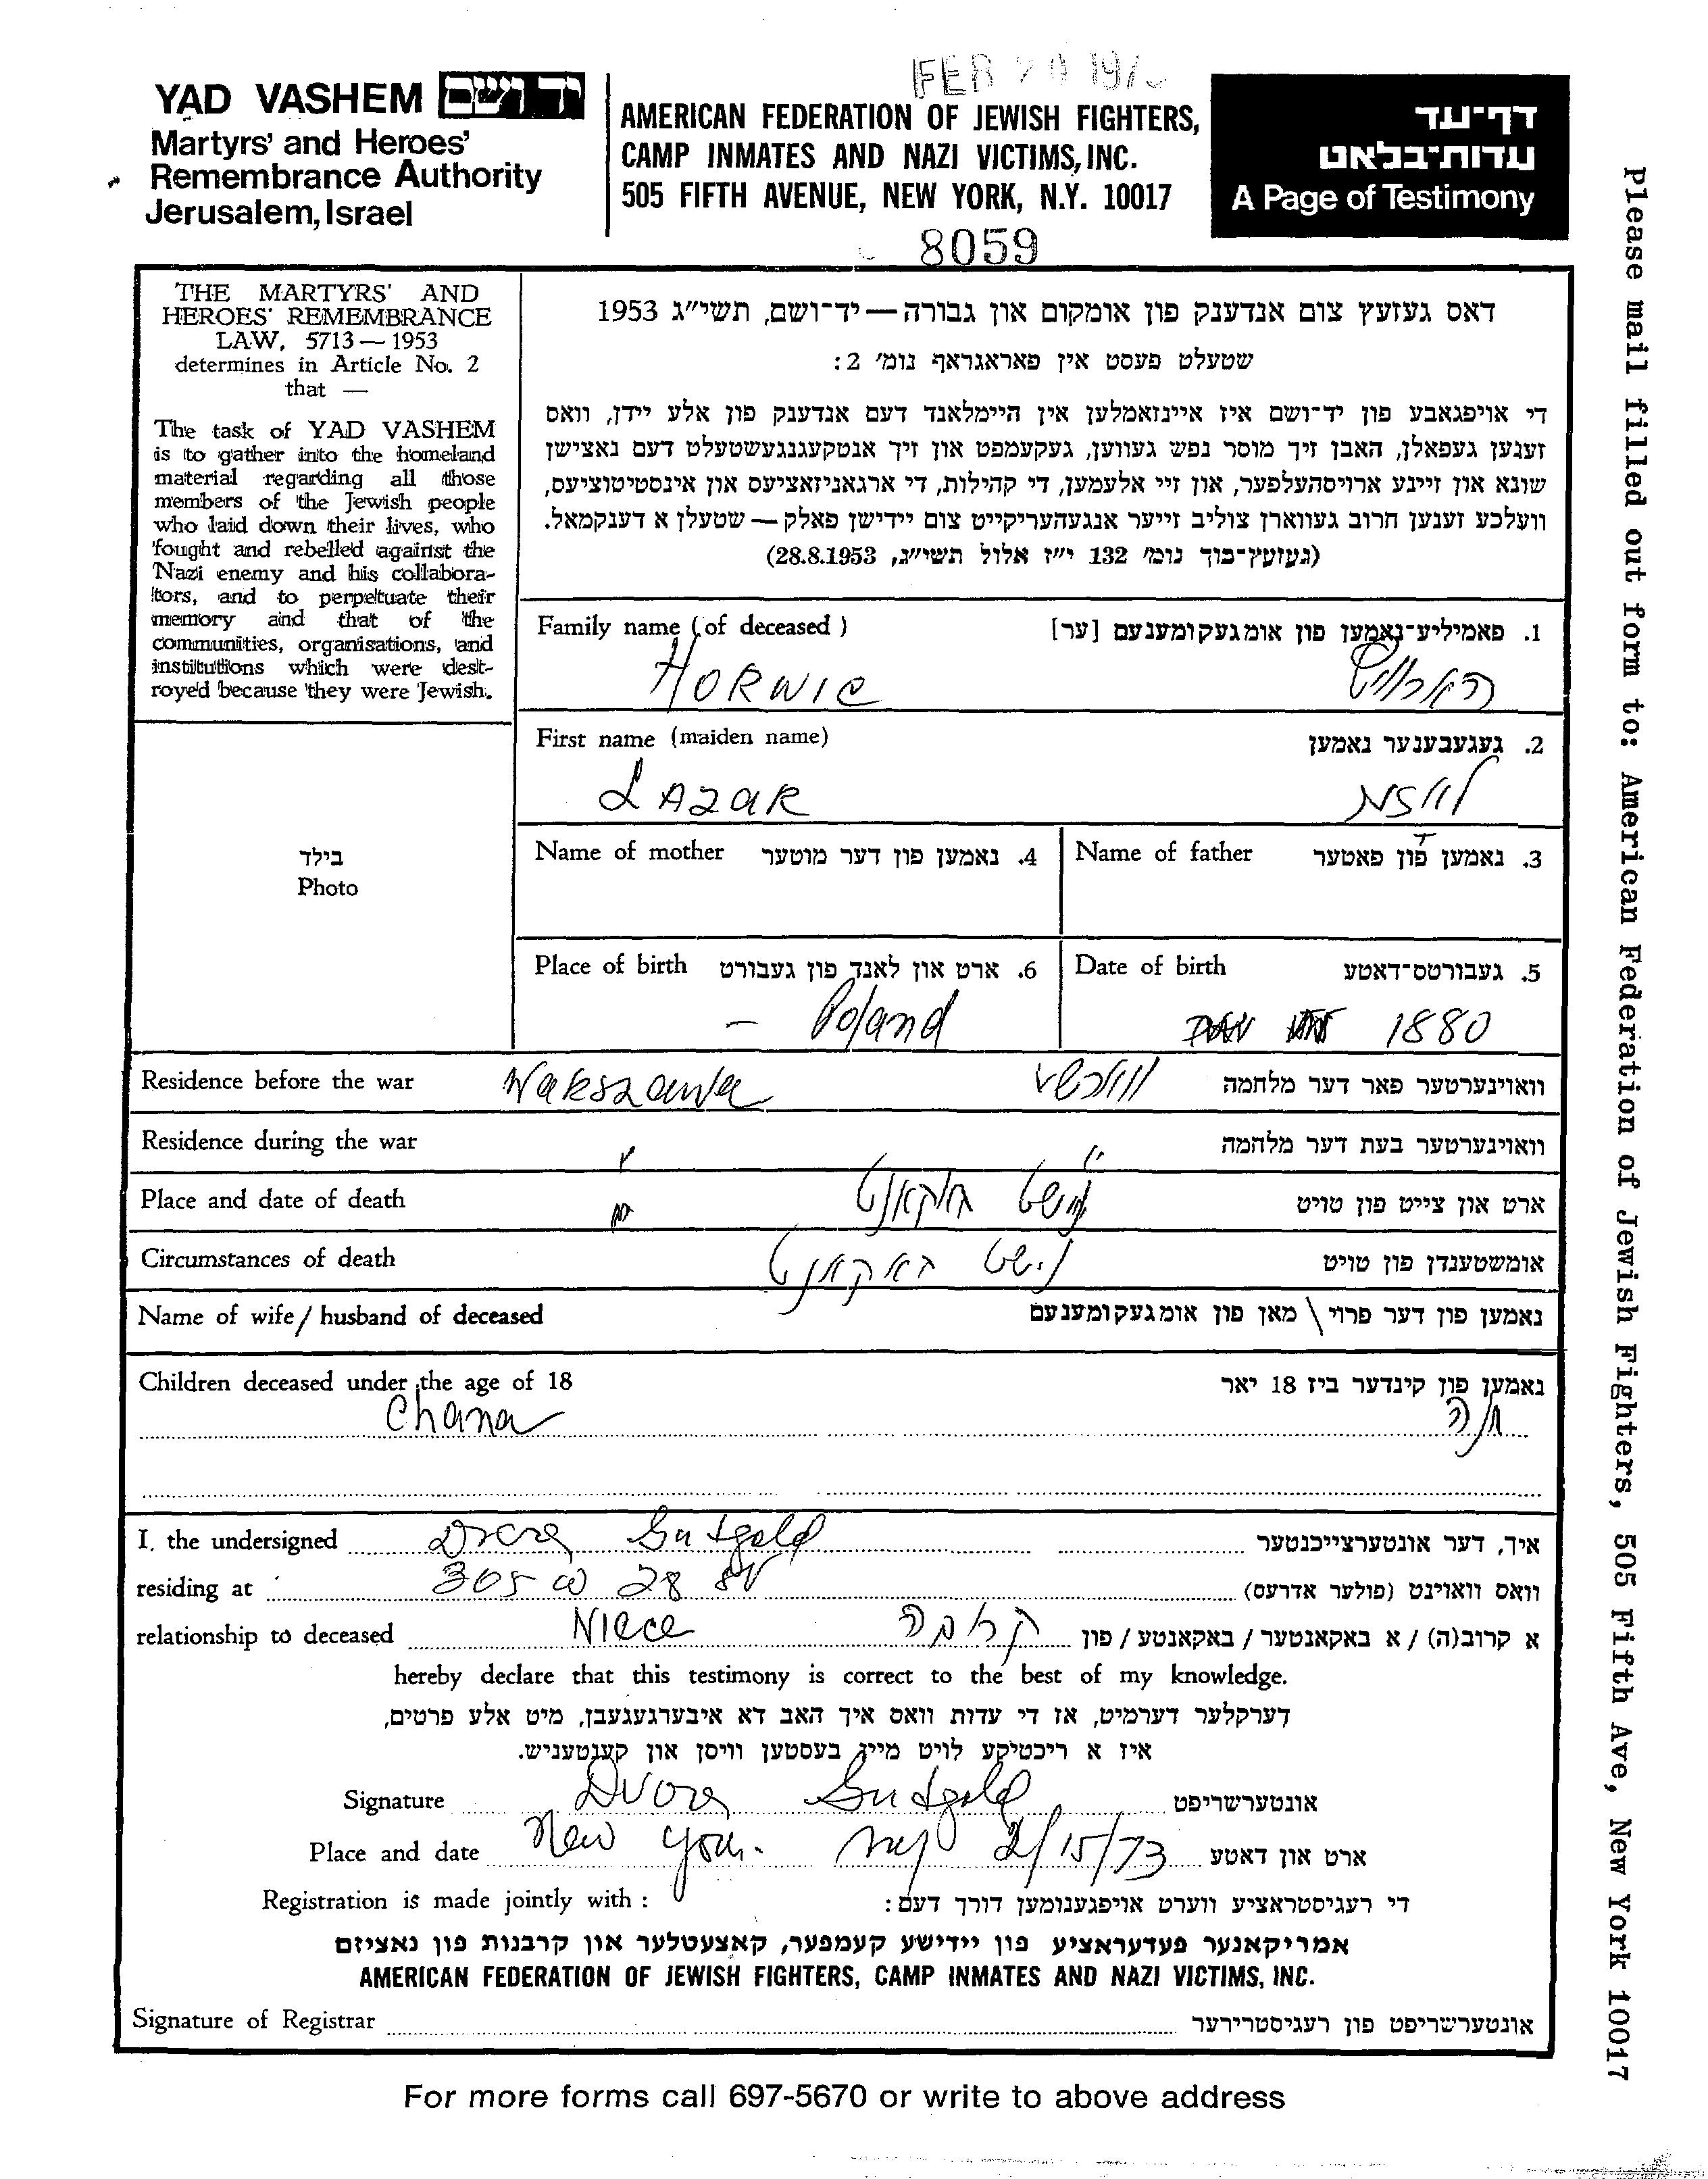 YAD VASHEM יד ושם
Martyrs' and Heroes'
Remembrance Authority
Jerusalem, Israel
FEB
AMERICAN FEDERATION OF JEWISH FIGHTERS,
CAMP INMATES AND NAZI VICTIMS, INC.
505 FIFTH AVENUE, NEW YORK, N.Y. 10017
8059
דף־עד
עדות־בלאט
A Page of Testimony
THE MARTYRS' AND
HEROES' REMEMBRANCE
LAW, 5713 — 1953
determines in Article No. 2
that —
The task of YAD VASHEM
is to gather into the homeland
material regarding all those
members of the Jewish people
who laid down their lives, who
fought and rebelled against the
Nazi enemy and his collabora-
tors, and to perpetuate their
memory and that of the
communities, organisations, and
institutions which were dest-
royed because they were Jewish.
דאס געזעץ צום אנדענק פון אומקום און גבורה — יד־ושם, תשי״ג 1953
שטעלט פעסט אין פאראגראף נומ׳ 2:
די אויפגאבע פון יד־ושם איז איינזאמלען אין היימלאנד דעם אנדענק פון אלע יידן, וואס
זענען געפאלן, האבן זיך מוסר נפש געווען, געקעמפט און זיך אנטקעגנגעשטעלט דעם נאצישן
שונא און זיינע ארויסהעלפער, און זיי אלעמען, די קהילות, די ארגאניזאציעס און אינסטיטוציעס,
וועלכע זענען חרוב געווארן צוליב זייער אנגעהעריקייט צום יידישן פאלק — שטעלן א דענקמאל.
(געזעץ־בוך נומ׳ 132 י״ז אלול תשי״ג, 28.8.1953)
Family name (of deceased) 1. פאמיליע־נאמען פון אומגעקומענעם [ער]
HORWIC
First name (maiden name) 2. געגעבענער נאמען
LAzaR
בילד
Photo
Name of mother 4. נאמען פון דער מוטער
Name of father 3. נאמען פון פאטער
Place of birth 6. ארט און לאנד פון געבורט
Poland
Date of birth 5. געבורטס־דאטע
1880
Residence before the war Warszawa ווארשע וואוינערטער פאר דער מלחמה
Residence during the war " וואוינערטער בעת דער מלחמה
Place and date of death נישט באקאנט ארט און צייט פון טויט
Circumstances of death נישט באקאנט אומשטענדן פון טויט
Name of wife / husband of deceased נאמען פון דער פרוי \ מאן פון אומגעקומענעם
Children deceased under the age of 18 נאמען פון קינדער ביז 18 יאר
Chana חנה
I, the undersigned Dvora Gutgold איך, דער אונטערצייכנטער
residing at 305 W 28 St וואס וואוינט (פולער אדרעס)
relationship to deceased Niece קרובה א קרוב(ה) / א באקאנטער / באקאנטע / פון
hereby declare that this testimony is correct to the best of my knowledge.
דערקלער דערמיט, אז די עדות וואס איך האב דא איבערגעגעבן, מיט אלע פרטים,
איז א ריכטיקע לויט מיין בעסטען וויסן און קענטעניש.
Signature Dvora Gutgold אונטערשריפט
Place and date New York 2/15/73 ארט און דאטע
Registration is made jointly with : די רעגיסטראציע ווערט אויפגענומען דורך דעם:
אמריקאנער פעדעראציע פון יידישע קעמפער, קאצעטלער און קרבנות פון נאציזם
AMERICAN FEDERATION OF JEWISH FIGHTERS, CAMP INMATES AND NAZI VICTIMS, INC.
Signature of Registrar אונטערשריפט פון רעגיסטרירער
For more forms call 697-5670 or write to above address
Please mail filled out form to: American Federation of Jewish Fighters, 505 Fifth Ave, New York 10017